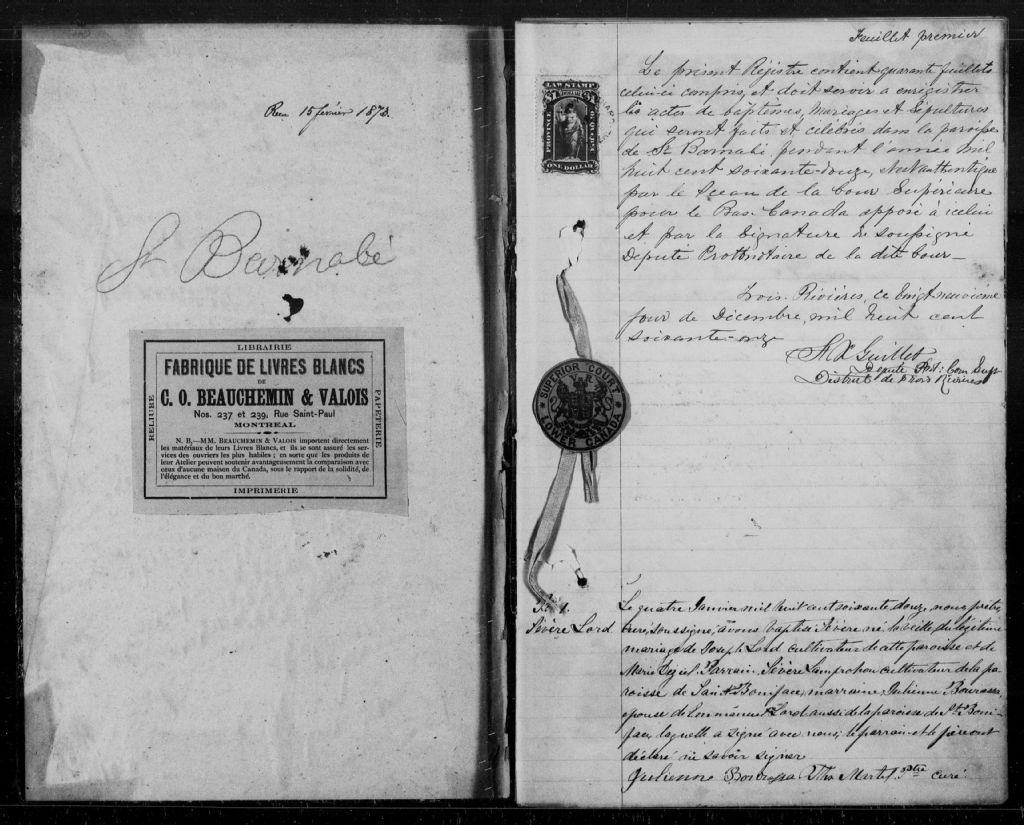 Recu 15 février 1873.
St Barnabé
LIBRAIRIE
FABRIQUE DE LIVRES BLANCS
DE
C. O. BEAUCHEMIN & VALOIS
Nos. 237 et 239, Rue Saint-Paul
MONTREAL
N. B.—MM. BEAUCHEMIN & VALOIS importent directement
les matériaux de leurs Livres Blancs, et ils se sont assuré les ser-
vices des ouvriers les plus habiles ; en sorte que les produits de
leur Atelier peuvent soutenir avantageusement la comparaison avec
ceux d'aucune maison du Canada, sous le rapport de la solidité, de
l'élégance et du bon marché.
IMPRIMERIE
RELIURE
PAPETERIE
Feuillet premier
LAW STAMP
$1 $1
PROVINCE
OF QUEBEC
ONE DOLLAR
Le présent Régistre contient quarante feuillets
celui-ci compris, et doit servir a enrégistrer
les actes de baptêmes, mariages et Sépultures
qui seront faits et célébrés dans la paroisse
de St Barnabé pendant l'année mil
huit cent soixante-douze, et est authentiqué
par le Sceau de la Cour Supérieure
pour le Bas-Canada apposé à icelui
et par la Signature du soussigné
Député Protonotaire de la dite Cour—
Trois-Rivières, ce vingt neuvième
jour de Décembre, mil huit cent
soixante-onze
Guillet
Député Prot: Cour Supr
District de Trois Rivières
SUPERIOR COURT
LOWER CANADA
B. 1.
Sévère Lord
Le quatre Janvier mil huit cent soixante douze, nous, prêtre
curé, soussigné, avons baptisé Sévère né la veille du légitime
mariage de Joseph Lord cultivateur de cette paroisse et de
Marie Parrain, Sévère Lamprohon cultivateur de la pa
roisse de Saint Boniface, marraine, Julienne Bourassa,
épouse de Emmanuel Lord aussi de la paroisse de St Boni-
face, laquelle a signé avec nous; le parrain et le père ont
déclaré ne savoir signer
Julienne Bourassa Ths Martel. ptre curé